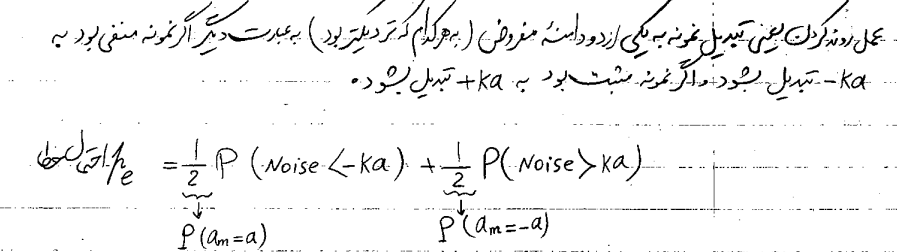 عمل روند کردن یعنی تبدیل نمونه به یکی از دو دامنهٔ مفروض (به هر کدام که نزدیکتر بود) به عبارت دیگر اگر نمونه منفی بود به
-ka تبدیل بشود و اگر نمونه مثبت بود به +ka تبدیل بشود.
احتمال خطا Pe = 1/2 P (Noise < -ka) + 1/2 P(Noise > ka)
↓ ↓
P(am=a) P(am=-a)